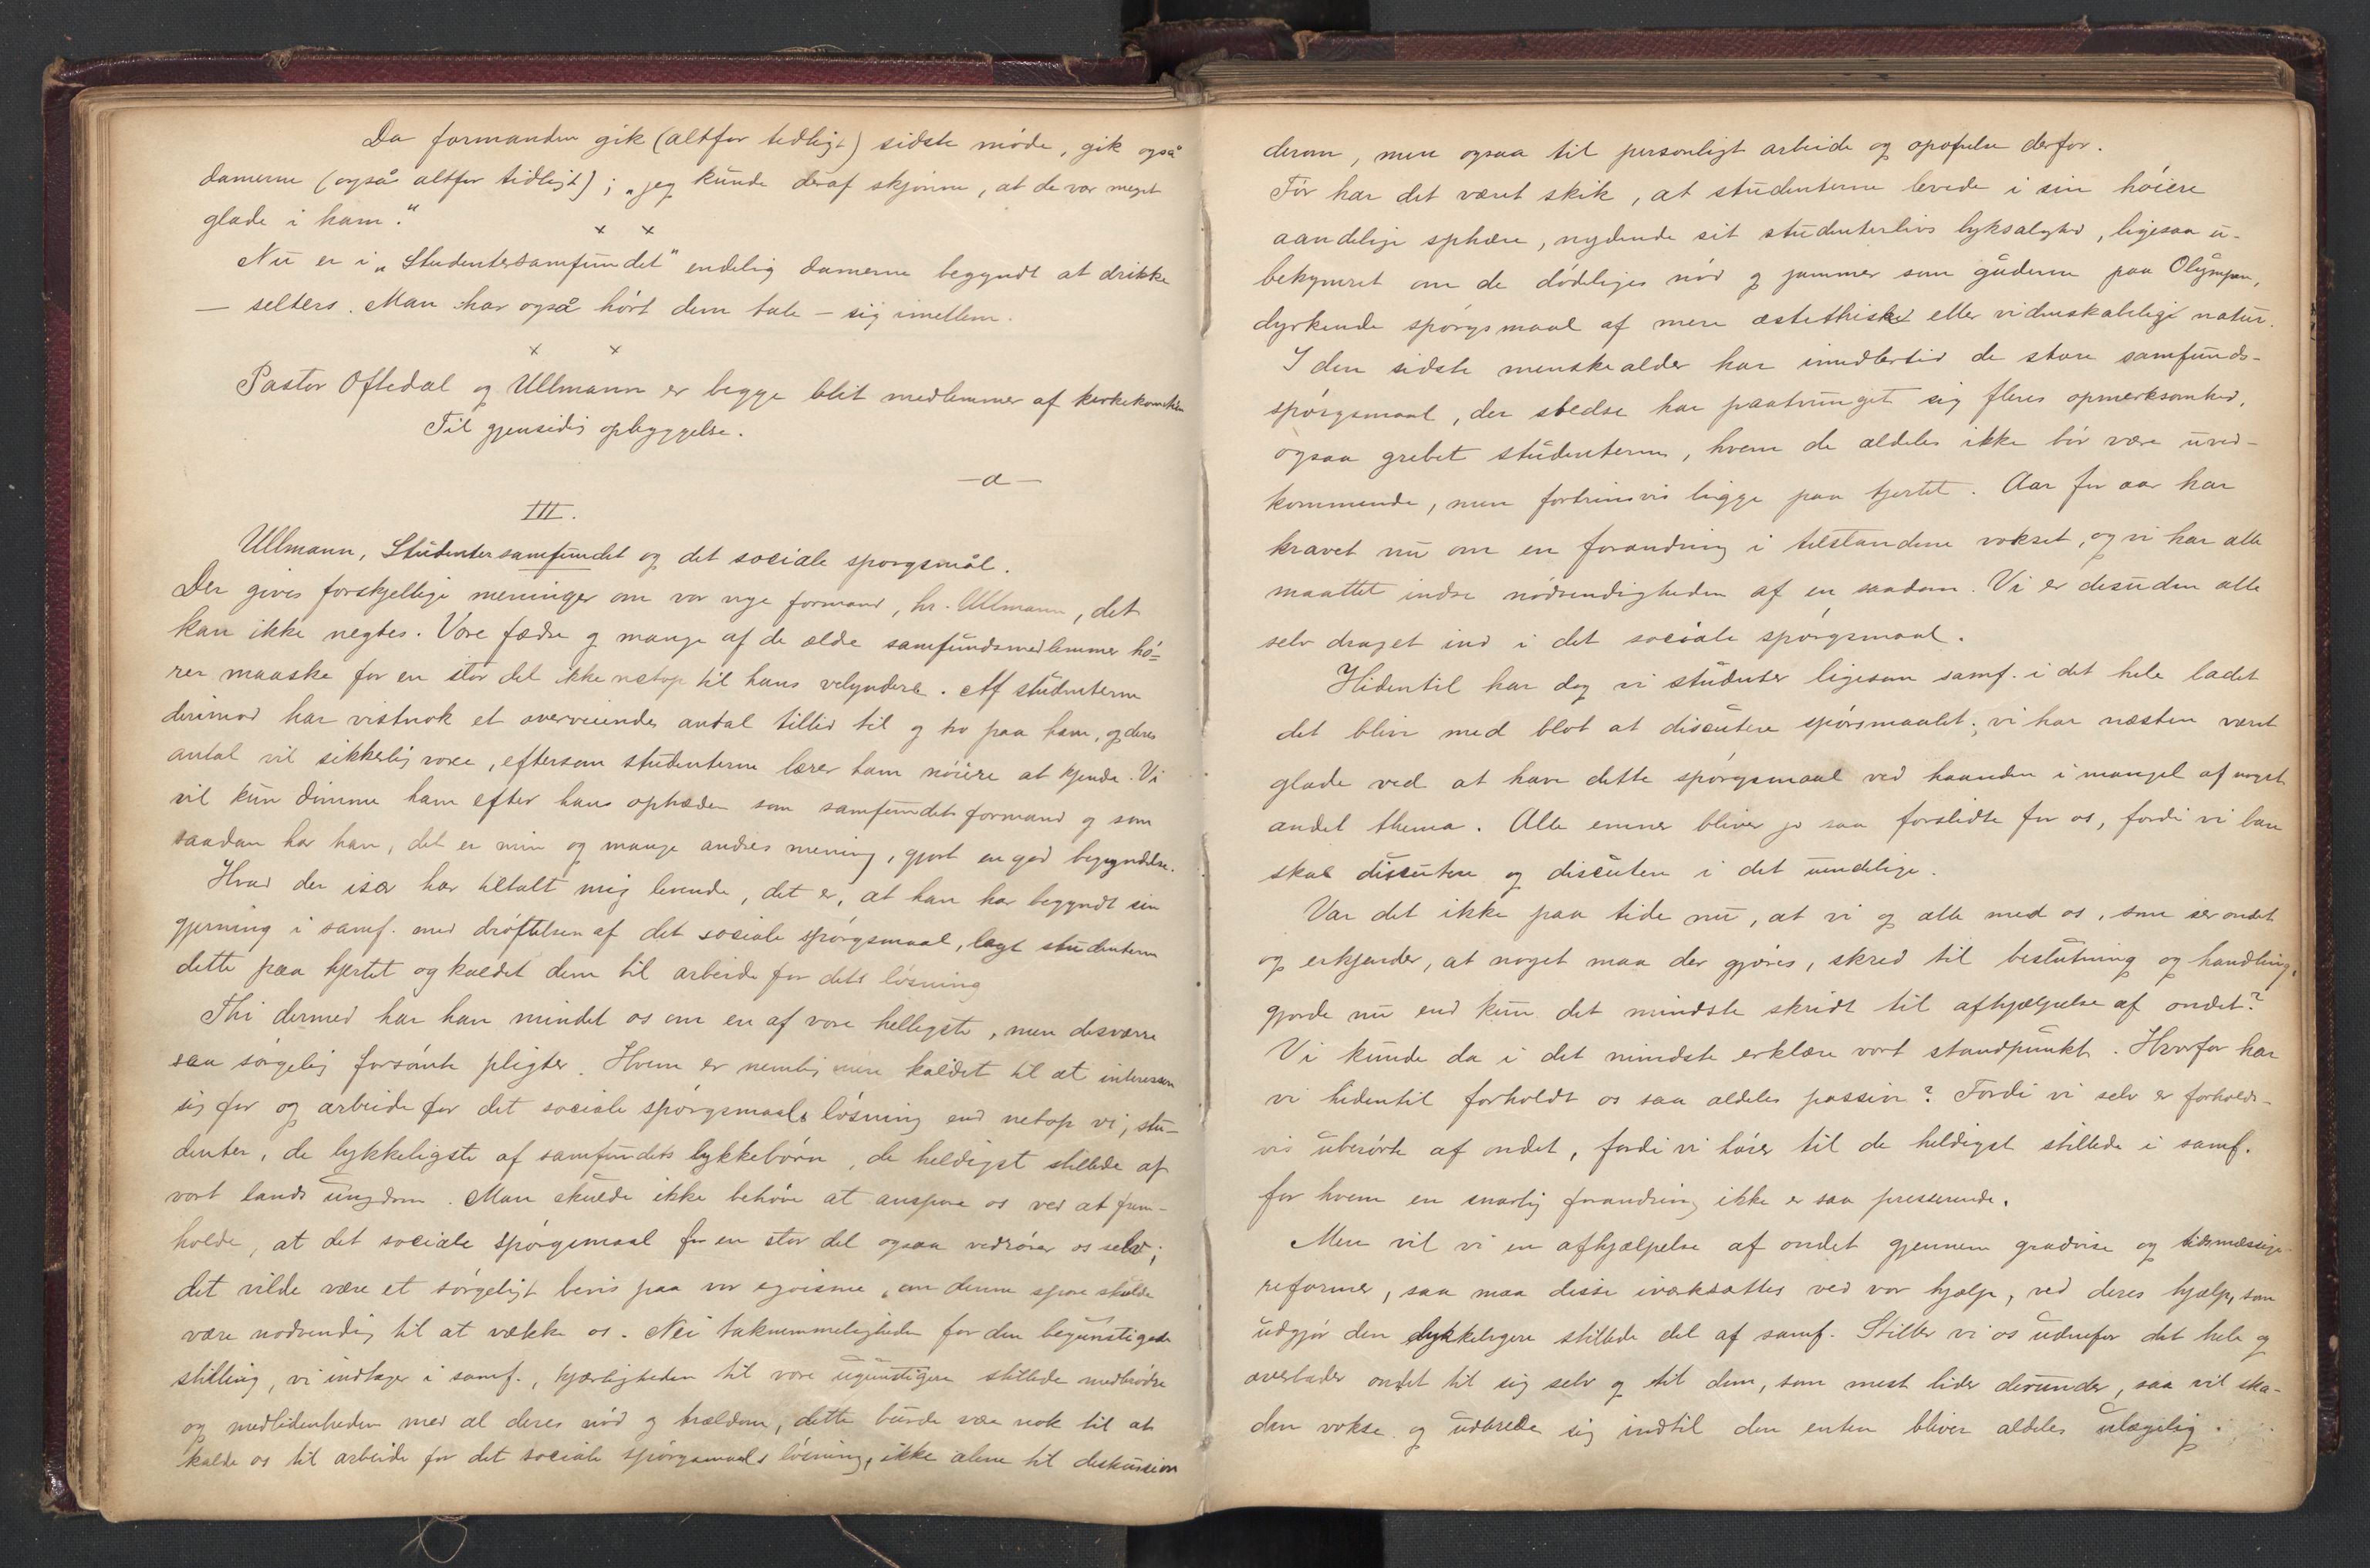 Da formanden gik (altfor tidligt) sidste møde, gik også
damerne (også altfor tidligt); „jeg kunde deraf skjønne, at de var meget
glade i ham."
x x
Nu er i „Studentersamfundet" endelig damerne begyndt at drikke
— selters. Man har også hørt dem tale — sig imellem.
x x
Pastor Oftedal og Ullmann er begge blit medlemmer af kirkekomiteen
Til gjensidig opbyggelse.
—a—
III.
Ullmann, Studentersamfundet og det sociale spørgsmål.
Der gives forskjellige meninger om vor nye formand, hr. Ullmann, det
kan ikke negtes. Vore fædre og mange af de ældre samfundsmedlemmer hø-
rer maaske for en stor del ikke netop til hans velyndere. Af studenterne
derimod har vistnok et overveiende antal tillid til og tro paa ham, og deres
antal vil sikkerlig voxe, eftersom studenterne lærer ham nøiere at kjende. Vi
vil kun dømme ham efter hans optræden som samfundets formand og som
saadan har han, det er min og mange andres mening, gjort en god begyndelse.
Hvad der især har tiltalt mig levende, det er, at han har begyndt sin
gjerning i samf. med drøftelsen af det sociale spørgsmaal, lagt studenterne
dette paa hjertet og kaldet dem til arbeide for dets løsning
Thi dermed har han mindet os om en af vore helligste, men desværre
saa sørgelig forsømte pligter. Hvem er nemlig mere kaldet til at interessere
sig for og arbeide for det sociale spørgsmaals løsning end netop vi, stu-
denter, de lykkeligste af samfundets lykkebørn, de heldigst stillede af
vort lands ungdom. Man skulde ikke behøve at anspore os ved at frem-
holde, at det sociale spørgsmaal for en stor del ogsaa vedrører os selv;
det vilde være et sørgeligt bevis paa vor egoisme, om denne spore skulde
være nødvendig til at vække os. Nei taknemmeligheden for den begunstigede
stilling, vi indtager i samf., kjærligheden til vore ugunstigere stillede medbrødre
og medlidenheden med al deres nød og trældom, dette burde være nok til at
kalde os til arbeide for det sociale spørgsmaals løsning, ikke alene til diskussion
derom, men ogsaa til personligt arbeide og opofrelse derfor.
Før har det været skik, at studenterne levede i sin høiere
aandelige sphære, nydende sit studenterlivs lyksalighed, ligesaa u-
bekymret om de dødeliges nød og jammer som guderne paa Olympen,
dyrkende spørgsmaal af mere æstethiske eller videnskabelige natur.
I den sidste menskealder har imidlertid de store samfunds-
spørgsmaal, der stedse har paatvunget sig fleres opmerksomhed,
ogsaa grebet studenterne, hvem de aldeles ikke bør være uved-
kommende, men fortrinsvis ligge paa hjertet. Aar for aar har
kravet nu om en forandring i tilstandene vokset, og vi har alle
maattet indse nødvendigheden af en saadan. Vi er desuden alle
selv draget ind i det sociale spørgsmaal.
Hidentil har dog vi studenter ligesom samf. i det hele ladet
det blive med blot at discutere spørsmaalet; vi har næsten været
glade ved at have dette spørgsmaal ved haanden i mangel af noget
andet thema. Alle emner bliver jo saa forslidte for os, fordi vi bare
skal discutere og discutere i det uendelige.
Var det ikke paa tide nu, at vi og alle med os, som ser ondet
og erkjender, at noget maa der gjøres, skred til beslutning og handling,
gjorde nu end kun det mindste skridt til afhjælpelse af ondet?
Vi kunde da i det mindste erklære vort standpunkt. Hvorfor har
vi hidentil forholdt os saa aldeles passive? Fordi vi selv er forholds-
vis uberørte af ondet, fordi vi hører til de heldigst stillede i samf.
for hvem en snarlig forandring ikke er saa presserende.
Men vil vi en afhjælpelse af ondet gjennem gradvise og tidsmæssige
reformer, saa maa disse iværksættes ved vor hjælp, ved deres hjælp, som
udgjør den lykkeligere stillede del af samf. Stiller vi os udenfor det hele og
overlader ondet til sig selv og til dem, som mest lider derunder, saa vil ska-
den vokse og udbrede sig indtil den enten bliver aldeles ulægelig.